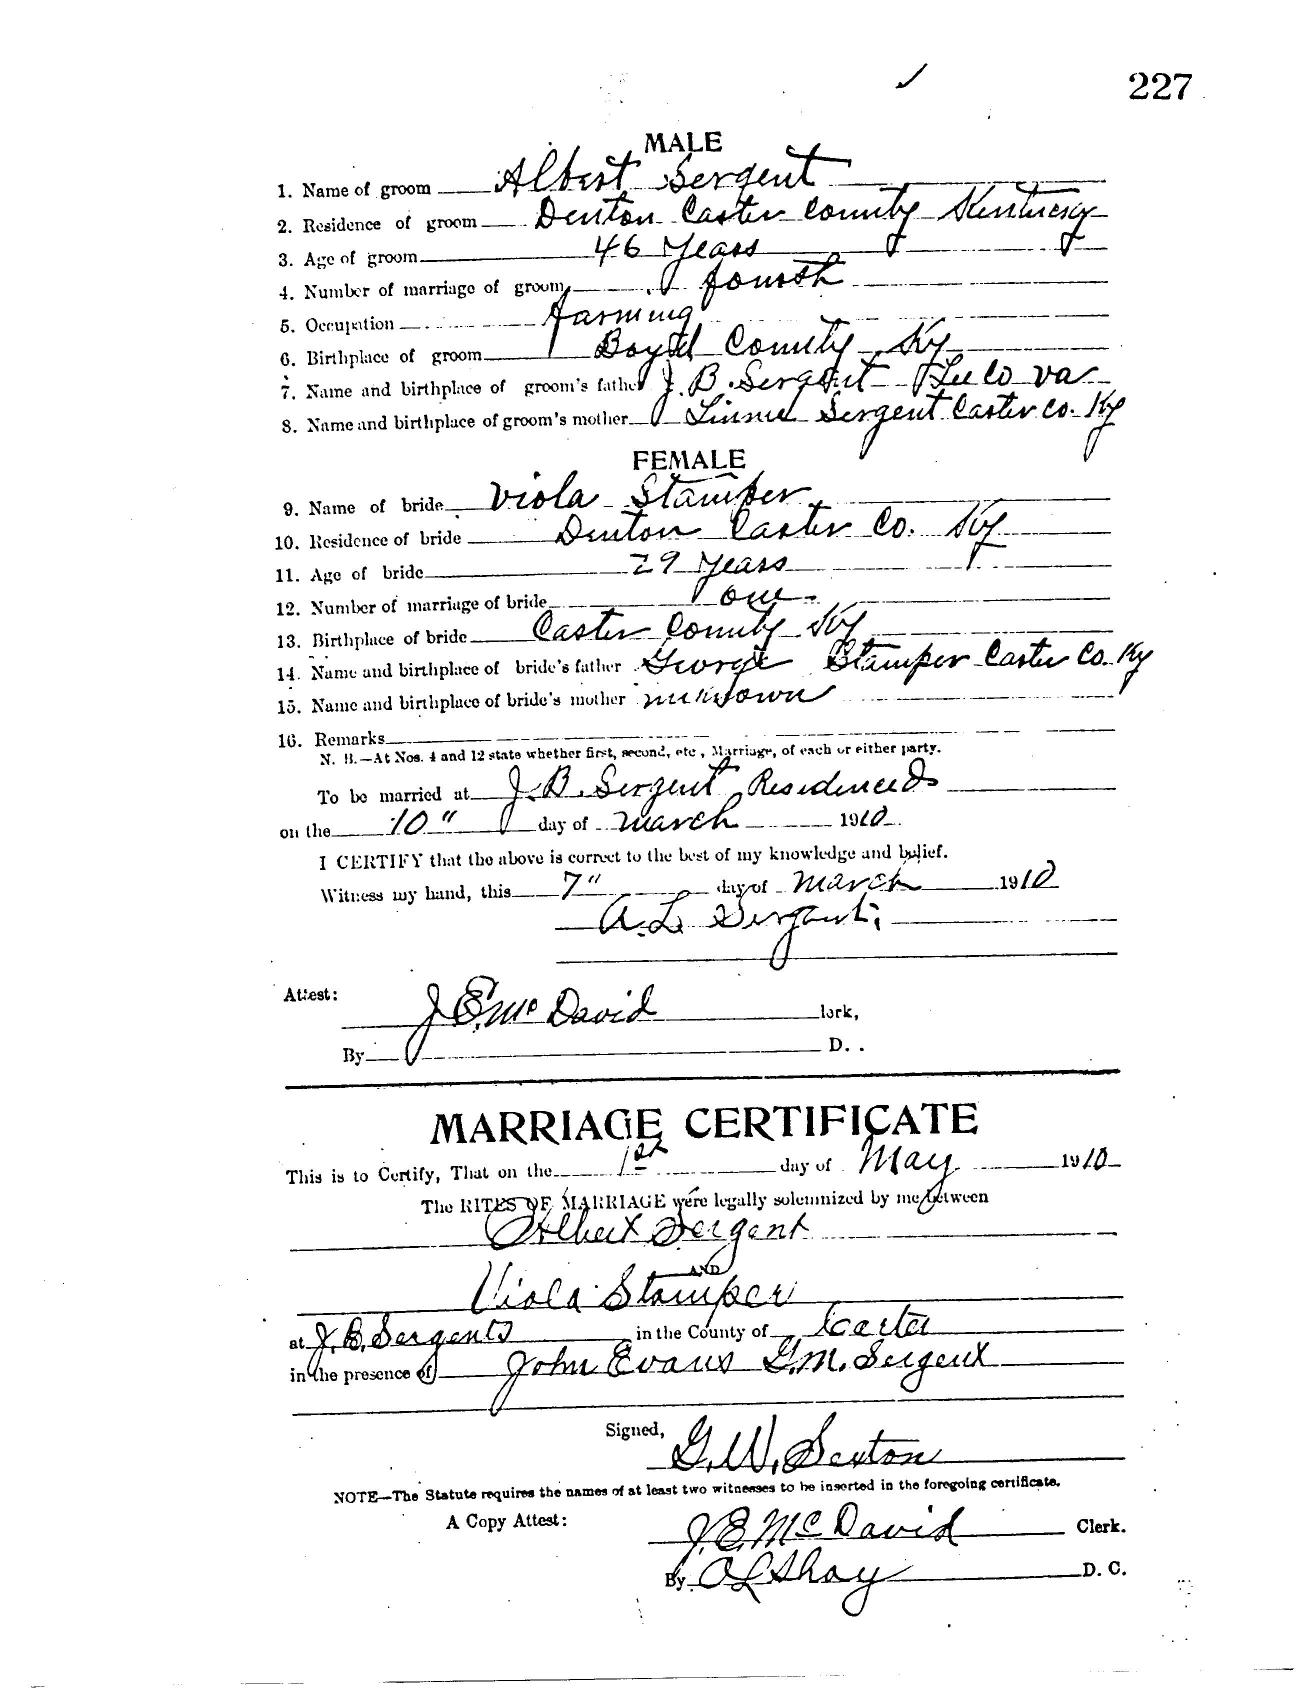 227
MALE
1. Name of groom Albert Sergent
2. Residence of groom Denton Carter County Kentucky
3. Age of groom 46 Years
4. Number of marriage of groom fourth
5. Occupation farming
6. Birthplace of groom Boyd County Ky
7. Name and birthplace of groom's father J. B. Sergent Lee Co va
8. Name and birthplace of groom's mother Linnie Sergent Carter co. Ky
FEMALE
9. Name of bride Viola Stamper
10. Residence of bride Denton Carter Co. Ky
11. Age of bride 29 Years
12. Number of marriage of bride one
13. Birthplace of bride Carter County Ky
14. Name and birthplace of bride's father George Stamper Carter Co. Ky
15. Name and birthplace of bride's mother unknown
16. Remarks
N. B.—At Nos. 4 and 12 state whether first, second, etc., Marriage, of each or either party.
To be married at J. B. Sergent Residence
on the 10" day of march 1910
I CERTIFY that the above is correct to the best of my knowledge and belief.
Witness my hand, this 7" day of March 1910
A. L. Sergent
Attest:
J. E. Mc David lerk,
By D. .
MARRIAGE CERTIFICATE
This is to Certify, That on the 1st day of May 1910
The RITES OF MARRIAGE were legally solemnized by me between
Albert Sergent
AND
Viola Stamper
at J. B. Sergents in the County of Carter
in the presence of John Evans G. M. Sergent
Signed,
G. W. Sexton
NOTE—The Statute requires the names of at least two witnesses to be inserted in the foregoing certificate.
A Copy Attest:
J. E. Mc David Clerk.
By D. C.